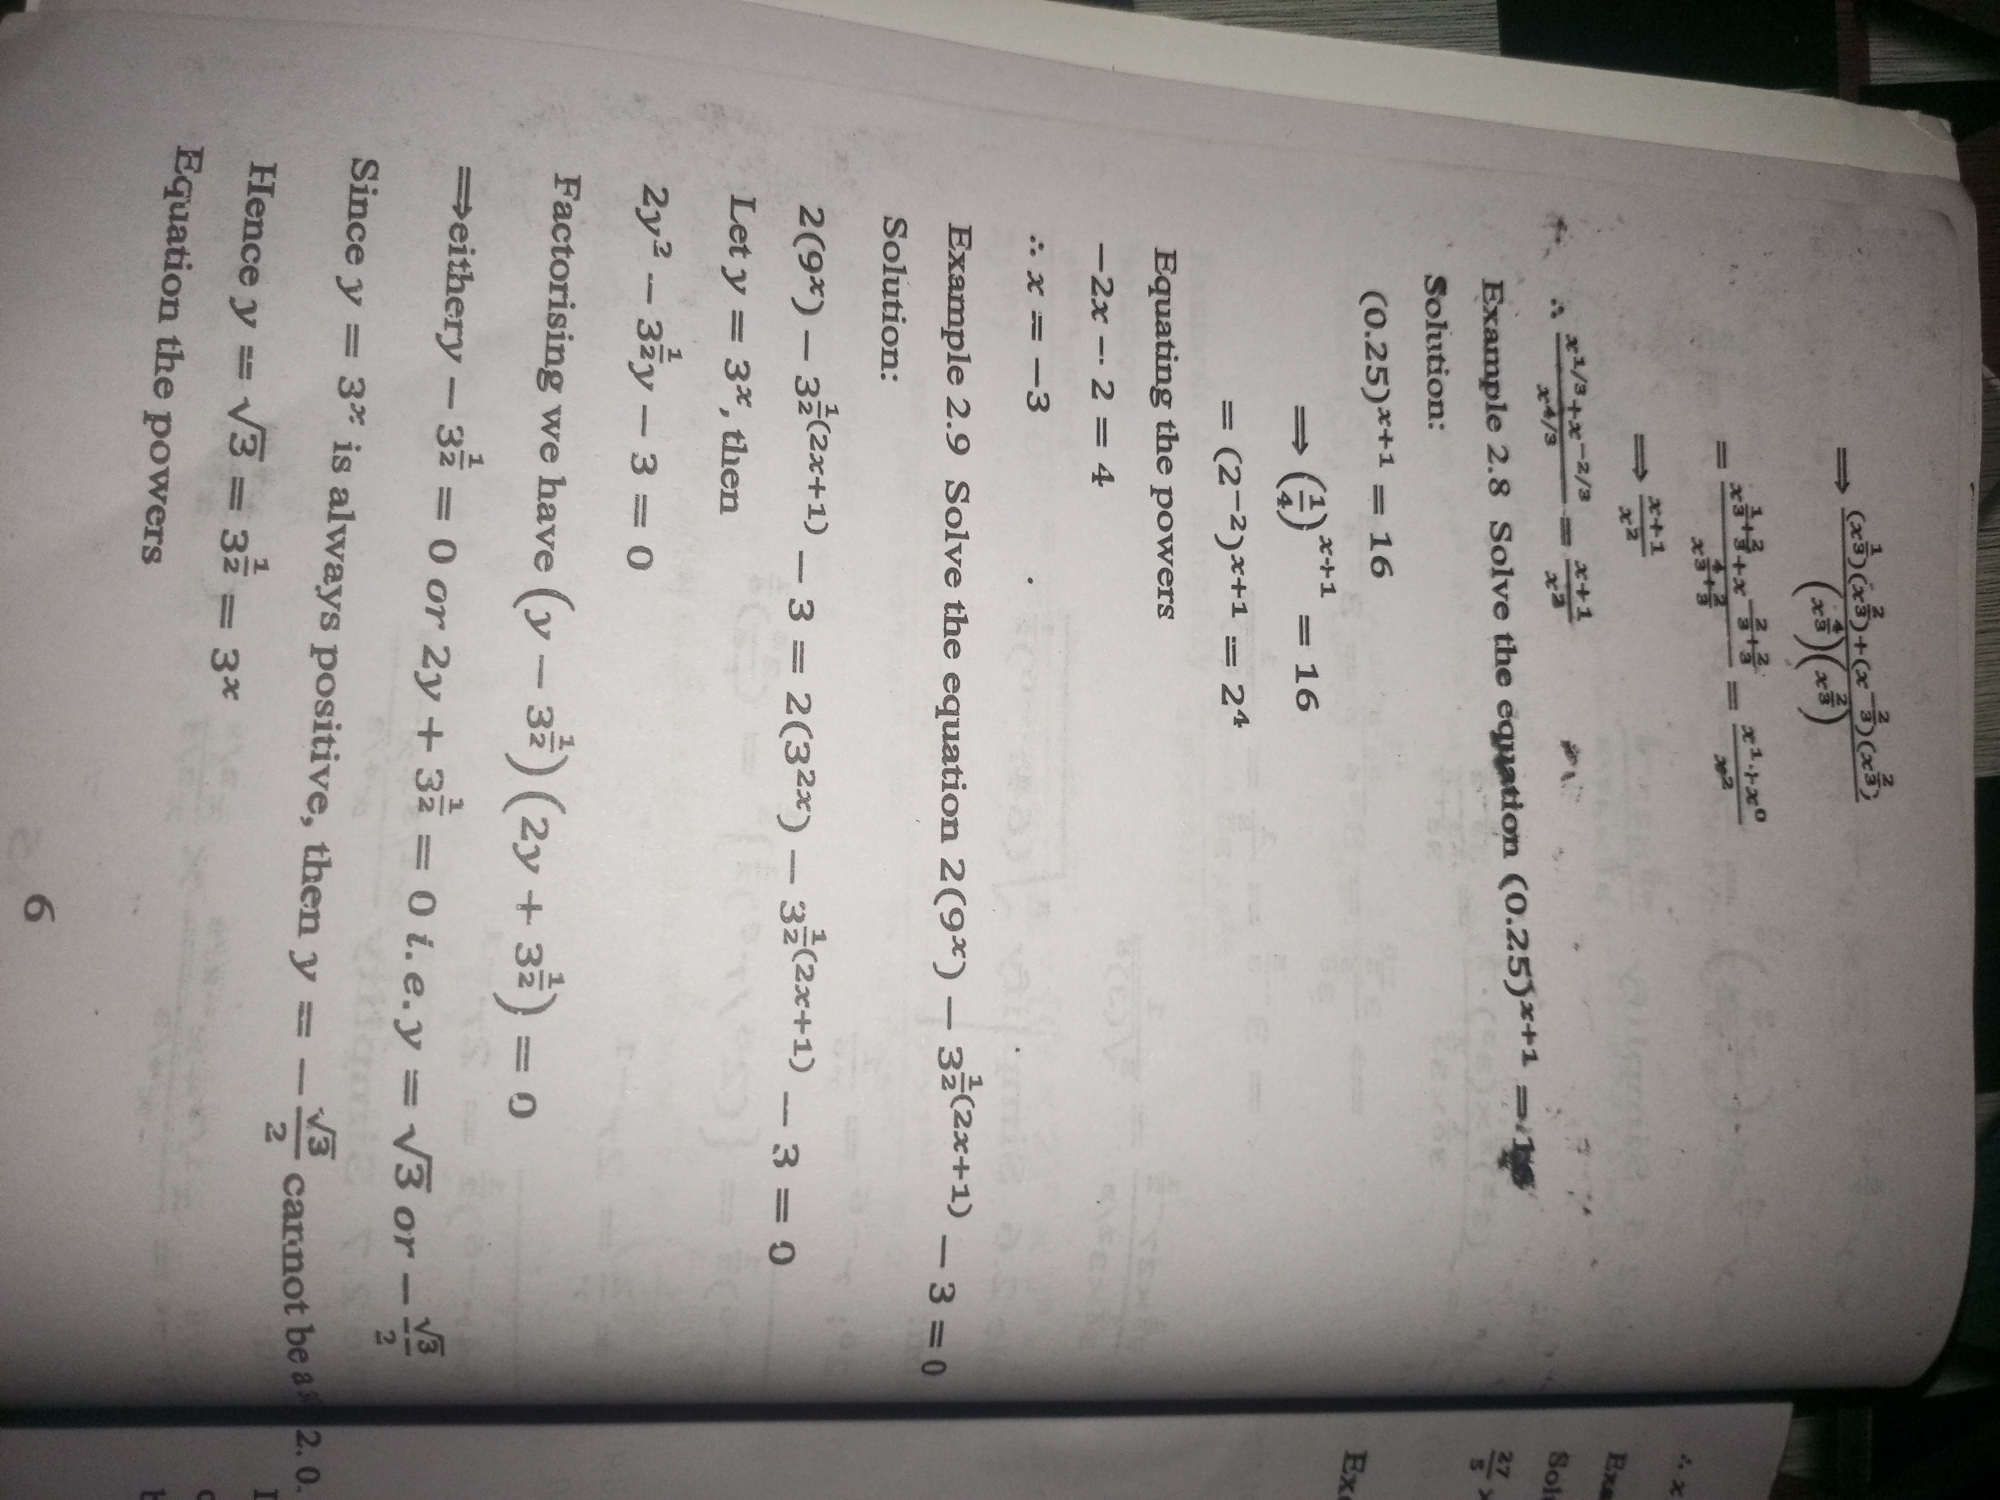 ⟹ ((x^(1/3))(x^(2/3))+(x^(-2/3))(x^(2/3)))/((x^(4/3))(x^(2/3)))
= (x^(1/3+2/3)+x^(-2/3+2/3))/(x^(4/3+2/3)) = (x^1+x^0)/x^2
⟹ (x+1)/x^2
∴ (x^(1/3)+x^(-2/3))/x^(4/3) = (x+1)/x^2
Example 2.8 Solve the equation (0.25)^(x+1) = 16
Solution:
(0.25)^(x+1) = 16
⟹ (1/4)^(x+1) = 16
= (2^(-2))^(x+1) = 2^4
Equating the powers
−2x − 2 = 4
∴ x = −3
Example 2.9 Solve the equation 2(9^x) − 3^(1/2(2x+1)) − 3 = 0
Solution:
2(9^x) − 3^(1/2(2x+1)) − 3 = 2(3^(2x)) − 3^(1/2(2x+1)) − 3 = 0
Let y = 3^x, then
2y² − 3^(1/2)y − 3 = 0
Factorising we have (y − 3^(1/2))(2y + 3^(1/2)) = 0
⟹eithery − 3^(1/2) = 0 or 2y + 3^(1/2) = 0 i.e. y = √3 or − √3/2
Since y = 3^x is always positive, then y = − √3/2 cannot be a
Hence y = √3 = 3^(1/2) = 3^x
Equation the powers
6
∴ x
27/5
2.0.